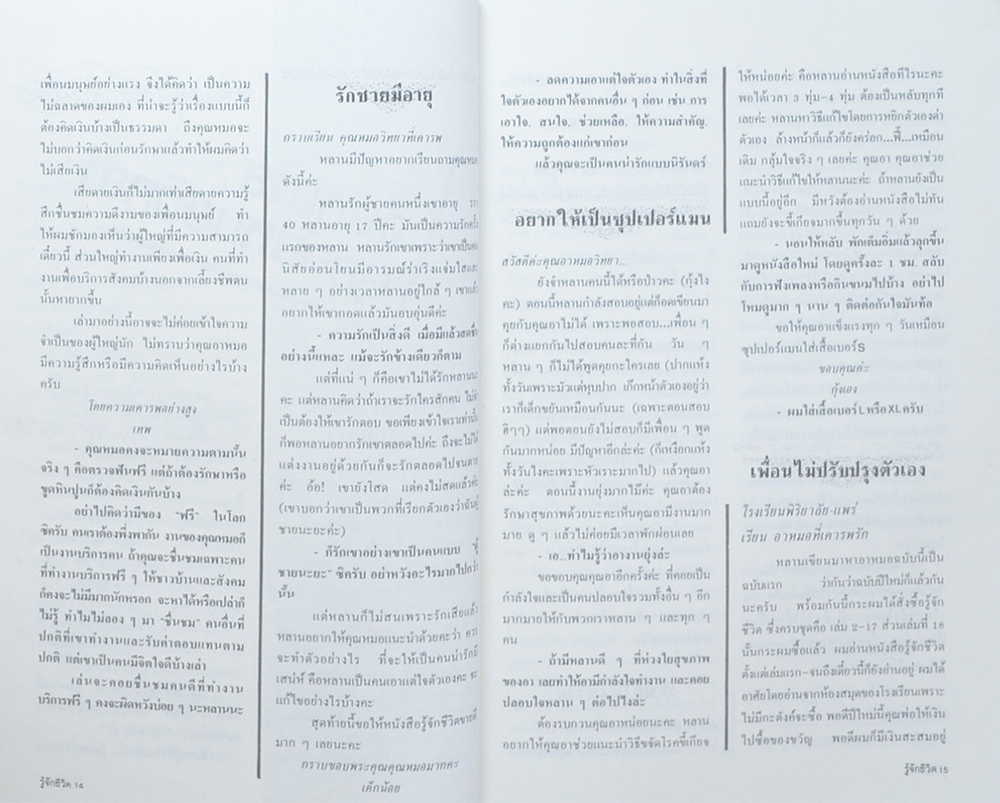 เพื่อนมนุษย์อย่างแรง จึงได้คิดว่า เป็นความ
ไม่ฉลาดของผมเอง ที่น่าจะรู้ว่าเรื่องแบบนี้ก็
ต้องคิดเงินบ้างเป็นธรรมดา ถึงคุณหมอจะ
ไม่บอกว่าคิดเงินก่อนรักษาแล้วทำให้ผมคิดว่า
ไม่เสียเงิน
เสียดายเงินก็ไม่มากเท่าเสียดายความรู้
สึกชื่นชมความดีงามของเพื่อนมนุษย์ ทำ
ให้ผมชักมองเห็นว่าผู้ใหญ่ที่มีความสามารถ
เดี๋ยวนี้ ส่วนใหญ่ทำงานเพียงเพื่อเงิน คนที่ทำ
งานเพื่อบริการสังคมบ้างนอกจากเลี้ยงชีพตน
นั้นหายากขึ้น
เล่ามาอย่างนี้อาจจะไม่ค่อยเข้าใจความ
จำเป็นของผู้ใหญ่นัก ไม่ทราบว่าคุณอาหมอ
มีความรู้สึกหรือมีความคิดเห็นอย่างไรบ้าง
ครับ
โดยความเคารพอย่างสูง
เทพ
- คุณหมอคงจะหมายความตามนั้น
จริง ๆ คือตรวจฟันฟรี แต่ถ้าต้องรักษาหรือ
ขูดหินปูนก็ต้องคิดเงินกันบ้าง
อย่าไปคิดว่ามีของ "ฟรี" ในโลก
ซิครับ คนเราต้องพึ่งพากัน งานของคุณหมอก็
เป็นงานบริการคน ถ้าคุณจะชื่นชมเฉพาะคน
ที่ทำงานบริการฟรี ๆ ให้ชาวบ้านและสังคม
ก็คงจะไม่มีมากนักหรอก จะหาได้หรือเปล่าก็
ไม่รู้ ทำไมไม่ลอง ๆ มา "ชื่นชม" คนอื่นที่
ปกติที่เขาทำงานและรับค่าตอบแทนตาม
ปกติ แต่เขาเป็นคนมีจิตใจดีบ้างเล่า
เล่นจะคอยชื่นชมคนดีที่ทำงาน
บริการฟรี ๆ คงจะผิดหวังบ่อย ๆ นะหลานนะ
รู้จักชีวิต 14
รักชายมีอายุ
กราบเรียน คุณหมอวิทยาที่เคารพ
หลานมีปัญหาอยากเรียนถามคุณหมอ
ดังนี้ค่ะ
หลานรักผู้ชายคนหนึ่งเขาอายุ
40 หลานอายุ 17 ปีคะ มันเป็นความรักครั้ง
แรกของหลาน หลานรักเขาเพราะว่าเขาเป็นคน
นิสัยอ่อนโยนมีอารมณ์ร่าเริงแจ่มใสและ
หลาย ๆ อย่างเวลาหลานอยู่ใกล้ ๆ เขาแล้ว
อยากให้เขากอดแล้วมันอบอุ่นดีค่ะ
- ความรักเป็นสิ่งดี เมื่อมีแล้วสดชื่น
อย่างนี้แหละ แม้จะรักข้างเดียวก็ตาม
แต่ที่แน่ ๆ ก็คือเขาไม่ได้รักหลานนะ
คะ แต่หลานคิดว่าถ้าเราจะรักใครสักคน ไม่จำ
เป็นต้องให้เขารักตอบ ขอเพียงเข้าใจเราเท่านั้น
ก็พอหลานอยากรักเขาตลอดไปค่ะ ถึงจะไม่ได้
แต่งงานอยู่ด้วยกันก็จะรักตลอดไปจนตาย
ค่ะ อ้อ! เขายังโสด แต่คงไม่สดแล้วค่ะ
(เขาบอกว่าเขาเป็นพวกที่เรียกตัวเองว่าฉันผู้
ชายนะยะค่ะ)
- ก็รักเขาอย่างเขาเป็นคนแบบ "ผู้
ชายนะยะ" ซิครับ อย่าหวังอะไรมากไปกว่า
นั้น
แต่หลานก็ไม่สนเพราะรักเสียแล้ว
หลานอยากให้คุณหมอแนะนำด้วยคะว่า ควร
จะทำตัวอย่างไร ที่จะให้เป็นคนน่ารักมี
เสน่ห์ คือหลานเป็นคนเอาแต่ใจตัวเองคะ จะ
แก้ไขอย่างไรบ้างคะ
สุดท้ายนี้ขอให้หนังสือรู้จักชีวิตขายดี
มาก ๆ เลยนะคะ
กราบขอบพระคุณคุณหมอมากคะ
เด็กน้อย
- ลดความเอาแต่ใจตัวเอง ทำในสิ่งที่
ใจตัวเองอยากได้จากคนอื่น ๆ ก่อน เช่น การ
เอาใจ, สนใจ, ช่วยเหลือ, ให้ความสำคัญ,
ให้ความถูกต้องแก่เขาก่อน
แล้วคุณจะเป็นคนน่ารักแบบนิรันดร์
อยากให้เป็นซุปเปอร์แมน
สวัสดีค่ะคุณอาหมอวิทยา...
ยังจำหลานคนนี้ได้หรือป่าวคะ (กุ้งไง
คะ) ตอนนี้หลานกำลังสอบอยู่แต่ก็อดเขียนมา
คุยกับคุณอาไม่ได้ เพราะพอสอบ...เพื่อน ๆ
ก็ต่างแยกกันไปสอบคนละที่กัน วัน ๆ
หลาน ๆ ก็ไม่ได้พูดคุยกะใครเลย (ปากแห้ง
ทั้งวันไงคะเพราะมัวแต่หุบปาก เก๊กหน้าตัวเองอยู่ว่า
เราก็เด็กขยันเหมือนกันนะ (เฉพาะตอนสอบ
ฮิๆๆ) แต่พอตอนยังไม่สอบก็มีเพื่อน ๆ พูด
กันมากหน่อย มีปัญหาอีกล่ะค่ะ (ก็เหงือกแห้ง
ทั้งวันไงคะเพราะหัวเราะมากไป) แล้วคุณอา
ล่ะค่ะ ตอนนี้งานยุ่งมากไม๊คะ คุณอาต้อง
รักษาสุขภาพด้วยนะคะเห็นคุณอามีงานมาก
มาย ดู ๆ แล้วไม่ค่อยมีเวลาพักผ่อนเลย
- เอ...ทำไมรู้ว่าอางานยุ่งล่ะ
ขอขอบคุณคุณอาอีกครั้งค่ะ ที่คอยเป็น
กำลังใจและเป็นคนปลอบใจรวมทั้งอื่น ๆ อีก
มากมายให้กับพวกเราหลาน ๆ และทุก ๆ
คน
- ถ้ามีหลานดี ๆ ที่ห่วงใยสุขภาพ
ของอา เลยทำให้อามีกำลังใจทำงาน และคอย
ปลอบใจหลาน ๆ ต่อไปไงล่ะ
ต้องรบกวนคุณอาหน่อยนะคะ หลาน
อยากให้คุณอาช่วยแนะนำวิธีขจัดโรคขี้เกียจ
ให้หน่อยค่ะ คือหลานอ่านหนังสือทีไรนะคะ
พอได้เวลา 3 ทุ่ม-4 ทุ่ม ต้องเป็นหลับทุกที
เลยค่ะ หลานหาวิธีแก้ไขโดยการหยิกตัวเองด่า
ตัวเอง ล้างหน้าก็แล้วก็ยังคร่อก...ฟี้...เหมือน
เดิม กลุ้มใจจริง ๆ เลยค่ะ คุณอา คุณอาช่วย
แนะนำวิธีแก้ไขให้หลานนะคะ ถ้าหลานยังเป็น
แบบนี้อยู่อีก มีหวังต้องอ่านหนังสือไม่ทัน
แถมยังจะขี้เกียจมากขึ้นทุกวัน ๆ ด้วย
- นอนให้หลับ พักเต็มอิ่มแล้วลุกขึ้น
มาดูหนังสือใหม่ โดยดูครั้งละ 1 ชม. สลับ
กับการฟังเพลงหรือกินขนมไปบ้าง อย่าไป
โหมดูมาก ๆ นาน ๆ ติดต่อกันไจมันท้อ
ขอให้คุณอาแข็งแรงทุก ๆ วันเหมือน
ซุปเปอร์แมนใส่เสื้อเบอร์S
ขอบคุณค่ะ
กุ้งเอง
- ผมใส่เสื้อเบอร์ L หรือ XL ครับ
เพื่อนไม่ปรับปรุงตัวเอง
โรงเรียนพิริยาลัย-แพร่
เรียน อาหมอที่เคารพรัก
หลานเขียนมาหาอาหมอฉบับนี้เป็น
ฉบับแรก ว่ากันว่าฉบับปีใหม่ก็แล้วกัน
นะครับ พร้อมกันนี้กระผมได้สั่งซื้อรู้จัก
ชีวิต ซึ่งครบชุดคือ เล่ม 2-17 ส่วนเล่มที่ 18
นั้นกระผมซื้อแล้ว ผมอ่านหนังสือรู้จักชีวิต
ตั้งแต่เล่มแรก-จนถึงเดี๋ยวนี้ก็ยังอ่านอยู่ ผมได้
อาศัยโดยอ่านจากห้องสมุดของโรงเรียนเพราะ
ไม่มีกะตังค์จะซื้อ พอดีปีใหม่นี้คุณพ่อให้เงิน
ไปซื้อของขวัญ พอดีผมก็มีเงินสะสมอยู่
รู้จักชีวิต 15